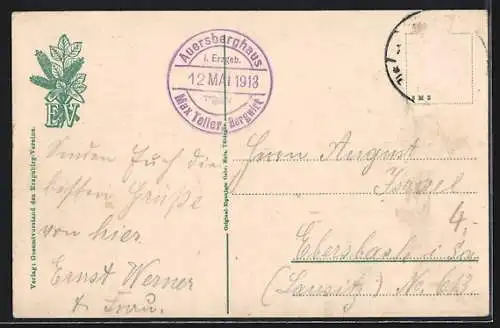 Auersberghaus
i. Erzgeb.
12 MAI 1913
Max Teller, Bergwirt
E.V.
Verlag: Gesamtvorstand des Erzgebirgs-Vereins.
Senden Euch die
besten Grüße
von hier
Ernst Werner
u. Frau.
Herrn August
Israel
Ebersbach i. Sa
(Lausitz) No. 613
4.-